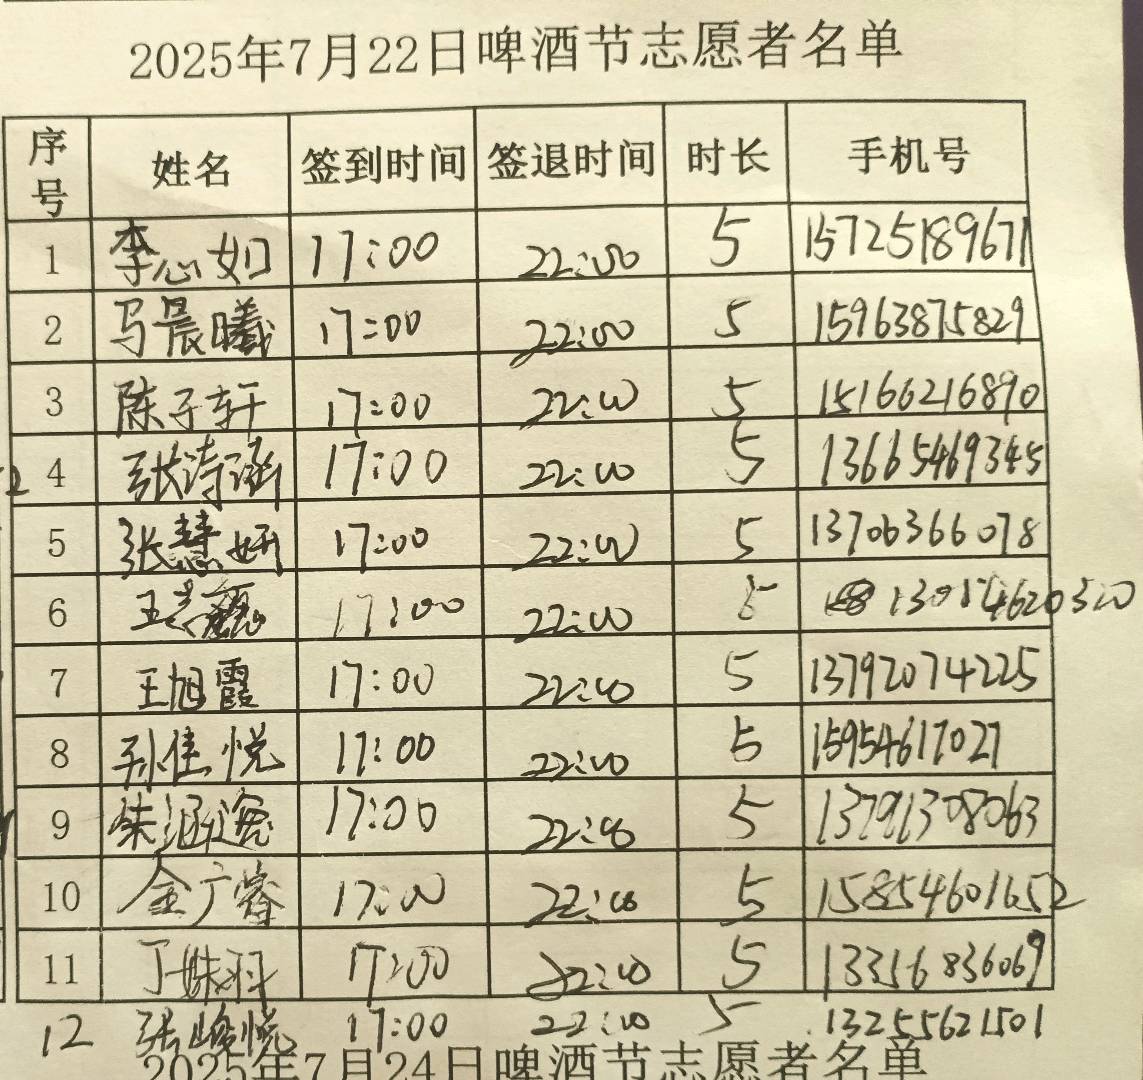 2025年7月22日啤酒节志愿者名单
序号 姓名 签到时间 签退时间 时长 手机号
1 李心如 17:00 22:00 5 15725189671
2 马晨曦 17:00 22:00 5 15963875829
3 陈子轩 17:00 22:00 5 15166216890
4 张诗涵 17:00 22:00 5 13665469345
5 张慧妍 17:00 22:00 5 13706366078
6 王 17:00 22:00 5
7 王旭霞 17:00 22:00 5 13792074225
8 孙佳悦 17:00 22:00 5 15954617027
9 朱涵 17:00 22:00 5 13791308063
10 金广睿 17:00 22:00 5 15854601652
11 丁姝羽 17:00 22:00 5 13356836069
12 张峻悦 17:00 22:00 5 13255621501
2025年7月24日啤酒节志愿者名单